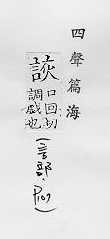 四聲篇海
詼
口回切
調戲也
(言部, P107)